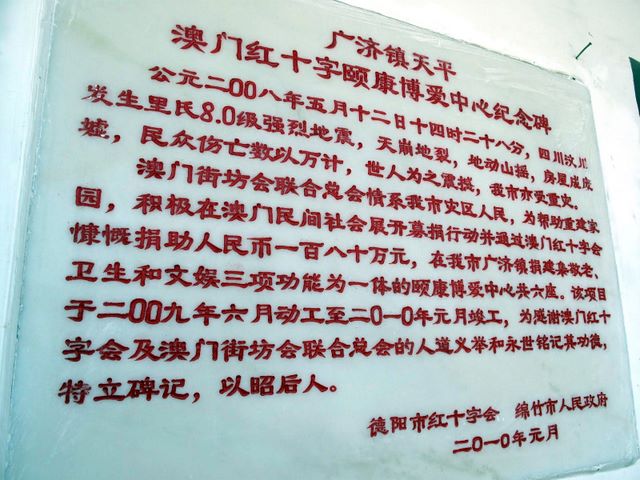 广济镇天平
澳门红十字颐康博爱中心纪念碑
公元二〇〇八年五月十二日十四时二十八分，四川汶川
发生里氏8.0级强烈地震，天崩地裂，地动山摇，房屋成废
墟，民众伤亡数以万计，世人为之震撼，我市亦受重灾。
澳门街坊会联合总会情系我市灾区人民，为帮助重建家
园，积极在澳门民间社会展开募捐行动并通过澳门红十字会
慷慨捐助人民币一百八十万元，在我市广济镇捐建集敬老、
卫生和文娱三项功能为一体的颐康博爱中心共六座。该项目
于二〇〇九年六月动工至二〇一〇年元月竣工，为感谢澳门红十
字会及澳门街坊会联合总会的人道义举和永世铭记其功德，
特立碑记，以昭后人。
德阳市红十字会 绵竹市人民政府
二〇一〇年元月